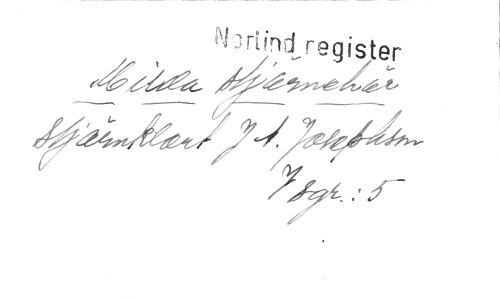 Norlind register
Milda stjärnehär
Stjärnklart J A Josephson
7 sgr.: 5